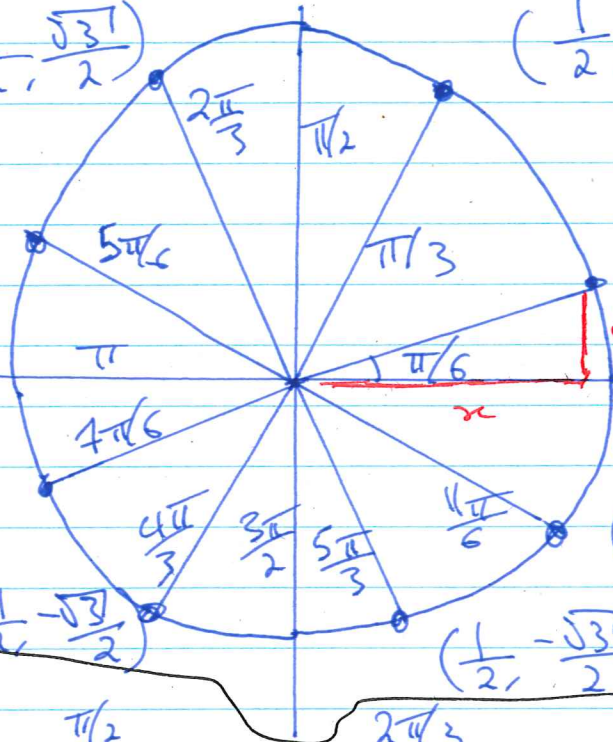 , √3/2)
(1/2
2π/3
π/2
5π/6
π/3
π
π/6
x
7π/6
4π/3
3π/2
5π/3
11π/6
, -√3/2)
(1/2, -√3/2
π/2
2π/3